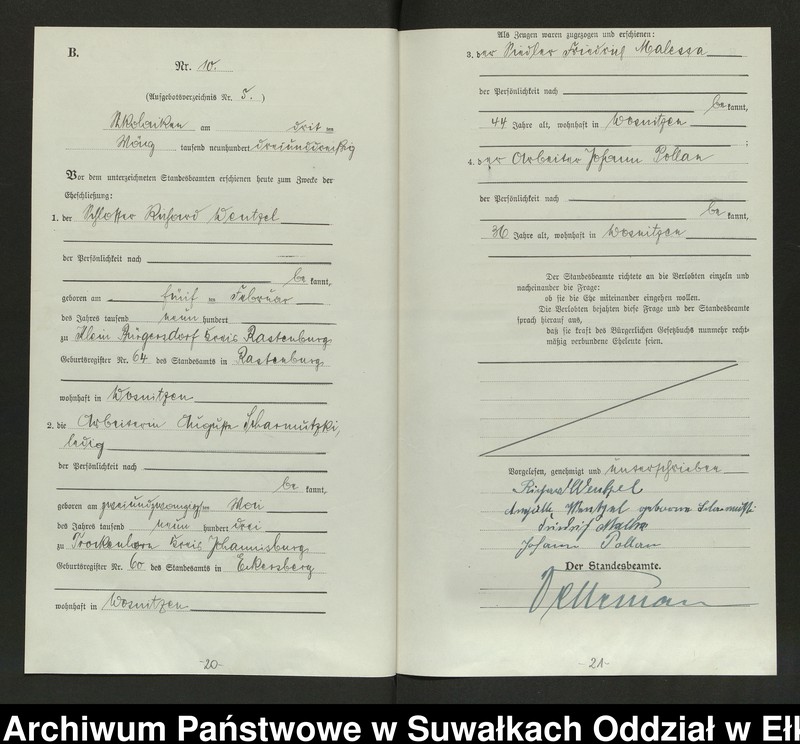 B.
Nr. 10.
(Aufgebotsverzeichnis Nr. 5.)
Nikolaiken am drit ten
März tausend neunhundert dreiunddreißig
Vor dem unterzeichneten Standesbeamten erschienen heute zum Zwecke der
Eheschließung:
1. der Schlosser Richard Wentzel
der Persönlichkeit nach
be kannt,
geboren am fünf ten Februar
des Jahres tausend neun hundert
zu Klein Bürgersdorf Kreis Rastenburg
Geburtsregister Nr. 64 des Standesamts in Rastenburg
wohnhaft in Wosnitzen
2. die Arbeiterin Auguste Scharmutzki,
ledig
der Persönlichkeit nach
be kannt,
geboren am zweiundzwanzigsten Mai
des Jahres tausend neun hundert drei
zu Trockenhorn Kreis Johannisburg
Geburtsregister Nr. 60 des Standesamts in Eckersberg
wohnhaft in Wosnitzen
-20-
Als Zeugen waren zugezogen und erschienen:
3. der Siedler Friedrich Malessa
der Persönlichkeit nach
be kannt,
44 Jahre alt, wohnhaft in Wosnitzen
;
4. der Arbeiter Johann Pollan
der Persönlichkeit nach
be kannt,
36 Jahre alt, wohnhaft in Wosnitzen
Der Standesbeamte richtete an die Verlobten einzeln und
nacheinander die Frage:
ob sie die Ehe miteinander eingehen wollen.
Die Verlobten bejahten diese Frage und der Standesbeamte
sprach hierauf aus,
daß sie kraft des Bürgerlichen Gesetzbuchs nunmehr recht-
mäßig verbundene Eheleute seien.
Vorgelesen, genehmigt und unterschrieben
Richard Wentzel
Auguste Wentzel geborene Scharmutzki
Friedrich Malessa
Johann Pollan
Der Standesbeamte.
-21-
Archiwum Państwowe w Suwałkach Oddział w Ełk